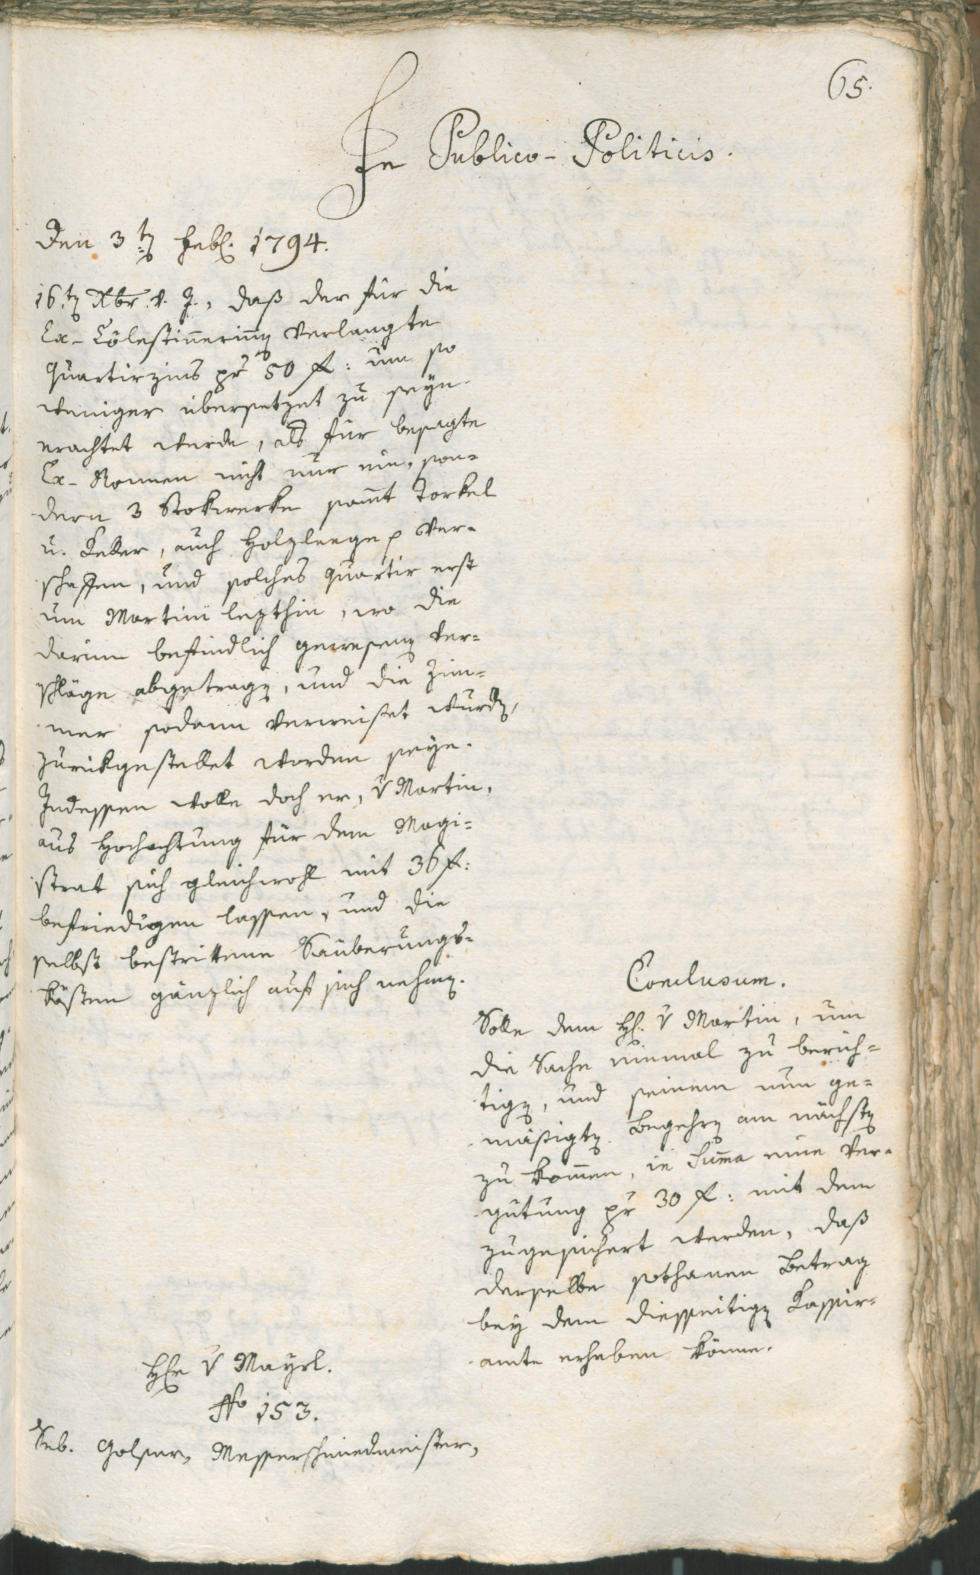 65.
In Publico-Politicis.
Den 3tn Febr. 1794.
16tn Xbr. v. J., daß der für die
Ex-Cölestinnerinn verlangte
Quartierzins pr 50 f: um so
weniger übersetzet zu seyn
erachtet werde, als für besagte
Ex-Nonnen nicht nur ein, son=
dern 3 Stokwerke sammt Torkel
u. Keller, auch Holzleege p ver=
schaffen, und solches Quartir erst
um Martini lezthin, wo die
darinn befindlich gewesenen Ver=
schläge abgetragen, und die Zim=
mer sodann verweißet wurden,
zurückgestellet worden seye.
Indessen wolle doch er, v Martin,
aus Hochachtung für dem Magi=
strat sich gleichwohl mit 36 f:
befriedigen lassen, und die
selbst bestrittene Säuberungs=
kösten gänzlich auf sich nehmen.
Conclusum.
Solle dem H. v Martin, um
die Sache einmal zu berich=
tigen, und seinem nun ge=
mäßigten Begehren am nächsten
zu kommen, in Summa eine Ver=
gütung pr 30 f: mit dem
zugesichert werden, daß
derselbe sothanen Betrag
bey dem diesseitigen Kassier=
amte erheben könne.
H v Mayrl.
No 153.
Seb. Golser, Messerschmiedmeister,